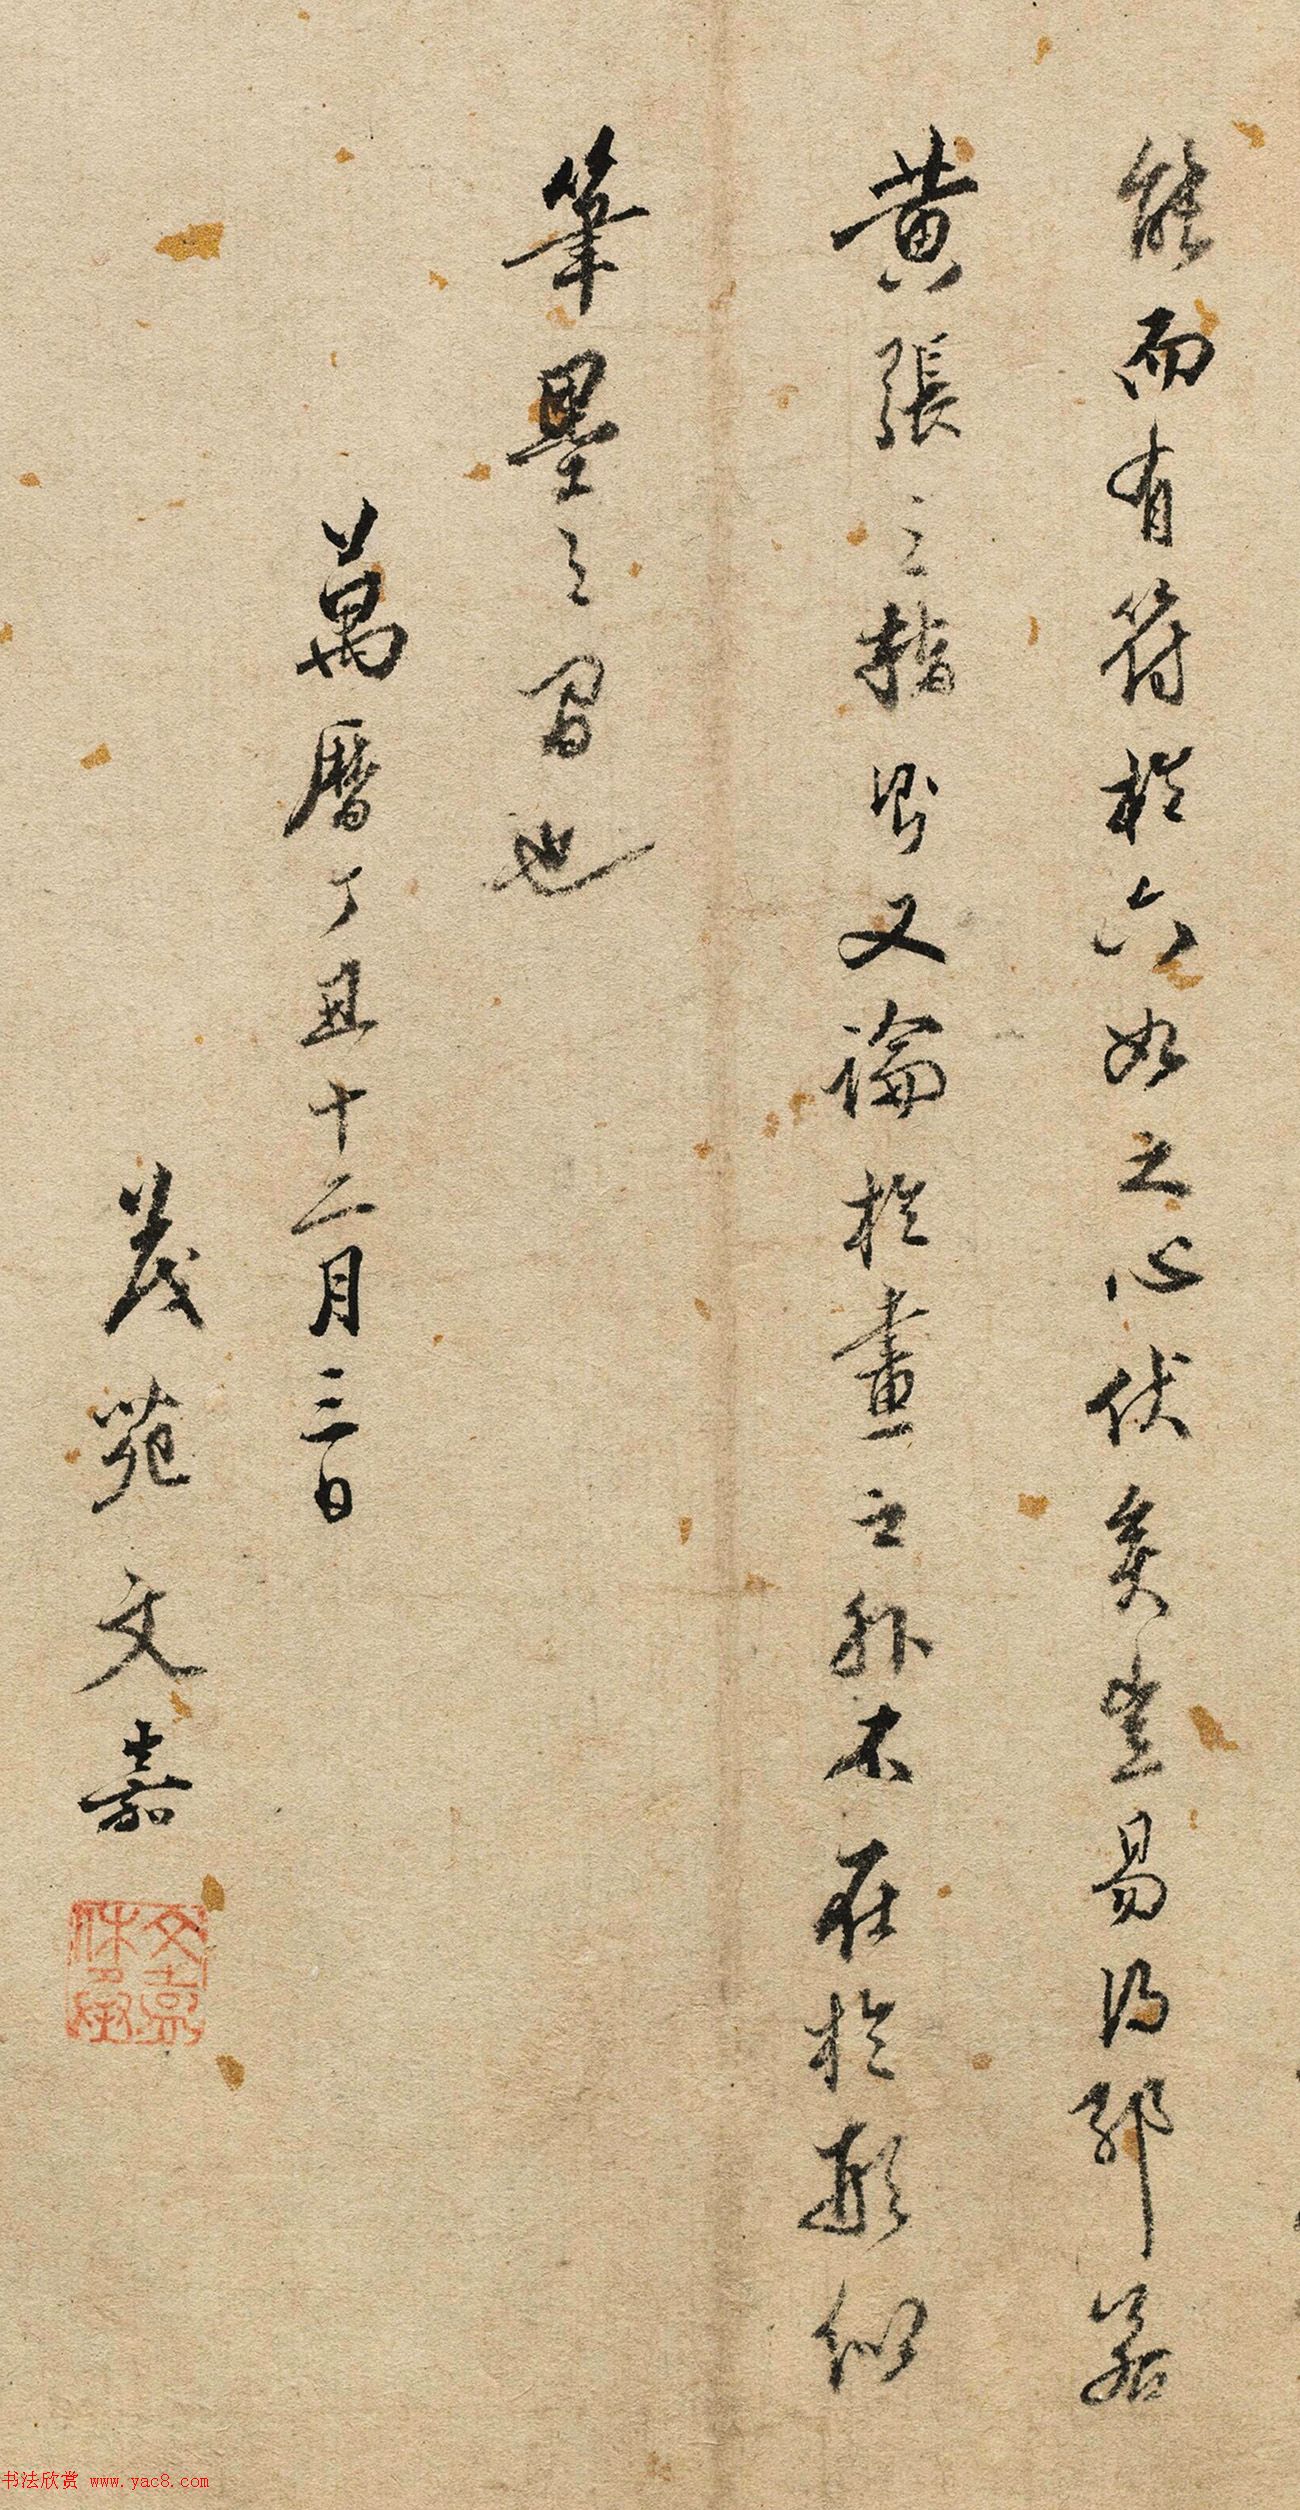 能而有符於六如之心伏矣豈易得耶若
黄張之指則又論於畫之外不在於形似
筆墨之間也
萬曆丁丑十二月三日
茂苑文嘉
文嘉休承
书法欣赏 www.yac8.com